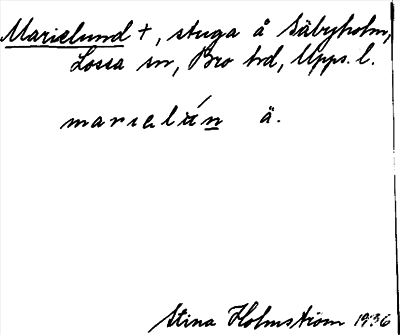 Marielund +, stuga å Säbyholm,
Lossa sn, Bro hd, Upps. l.
marielún ä.
Stina Holmström 1936